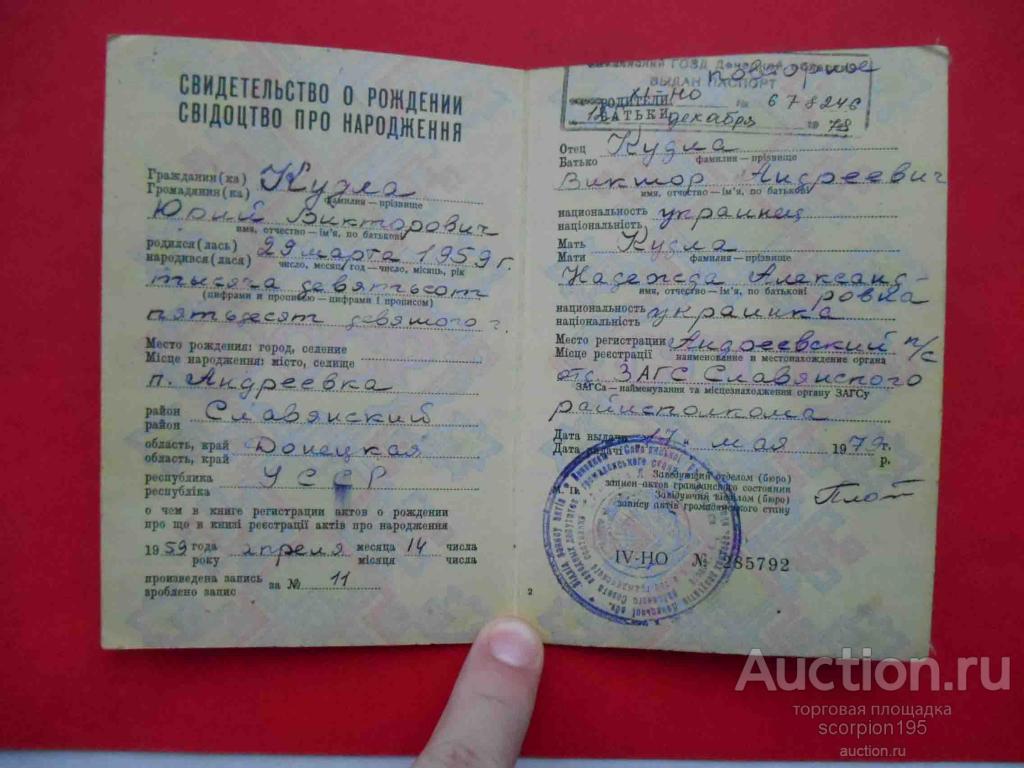 СВИДЕТЕЛЬСТВО О РОЖДЕНИИ
СВІДОЦТВО ПРО НАРОДЖЕННЯ
Гражданин(ка) Кудла
Громадянин(ка)
фамилия—прізвище
Юрий Викторович
имя, отчество—ім'я, по батькові
родился(лась) 29 марта 1959 г.
народився(лася)
число, месяц, год—число, місяць, рік
тысяча девятьсот
(цифрами и прописью—цифрами і прописом)
пятьдесят девятого г.
Место рождения: город, селение
Місце народження: місто, селище
п. Андреевка
район Славянский
район
область, край Донецкая
область, край
республика УССР
республіка
о чем в книге регистрации актов о рождении
про що в книзі реєстрації актів про народження
1959 года апреля месяца 14 числа
року місяця числа
произведена запись за № 11
зроблено запис
ГОВД Донецкой
повторное
ВЫДАН ПАСПОРТ
РОДИТЕЛИ XI-НО № 678246
БАТЬКИ 12 декабря 1978
Отец Кудла
Батько фамилия—прізвище
Виктор Андреевич
имя, отчество—ім'я, по батькові
национальность украинец
національність
Мать Кудла
Мати фамилия—прізвище
Надежда Александ-
имя, отчество—ім'я, по батькові ровна
национальность украинка
національність
Место регистрации Андреевский п/с
Місце реєстрації наименование и местонахождение органа
отс. ЗАГС Славянского
ЗАГСа—найменування та місцезнаходження органу ЗАГСу
райисполкома
Дата выдачи 17 мая 1979 г.
Дата видачі р.
Заведующий отделом (бюро)
записи актов гражданского состояния
Завідуючий відділом (бюро)
запису актів громадянського стану
М. П.
IV-НО № 285792
2
Auction.ru
торговая площадка
scorpion195
auction.ru